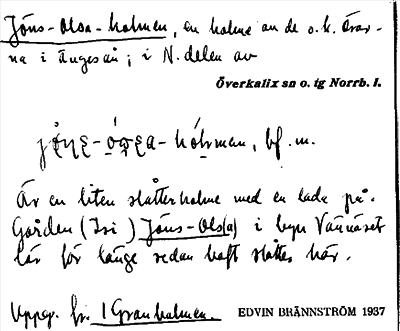 Jöns-Olsa-holmen, en holme av de s.k. Örar-
na i Ängesån; i N. delen av
Överkalix sn o. tg Norrb. l.
-hól̥man, bf. m.
Är en liten slåtterholme med en lada på.
Gården (Isi) Jöns-Ols(a) i byn Vännäset
lär för länge sedan haft slåtter här.
Uppg. fr. 1 Granholmen.
EDVIN BRÄNNSTRÖM 1937